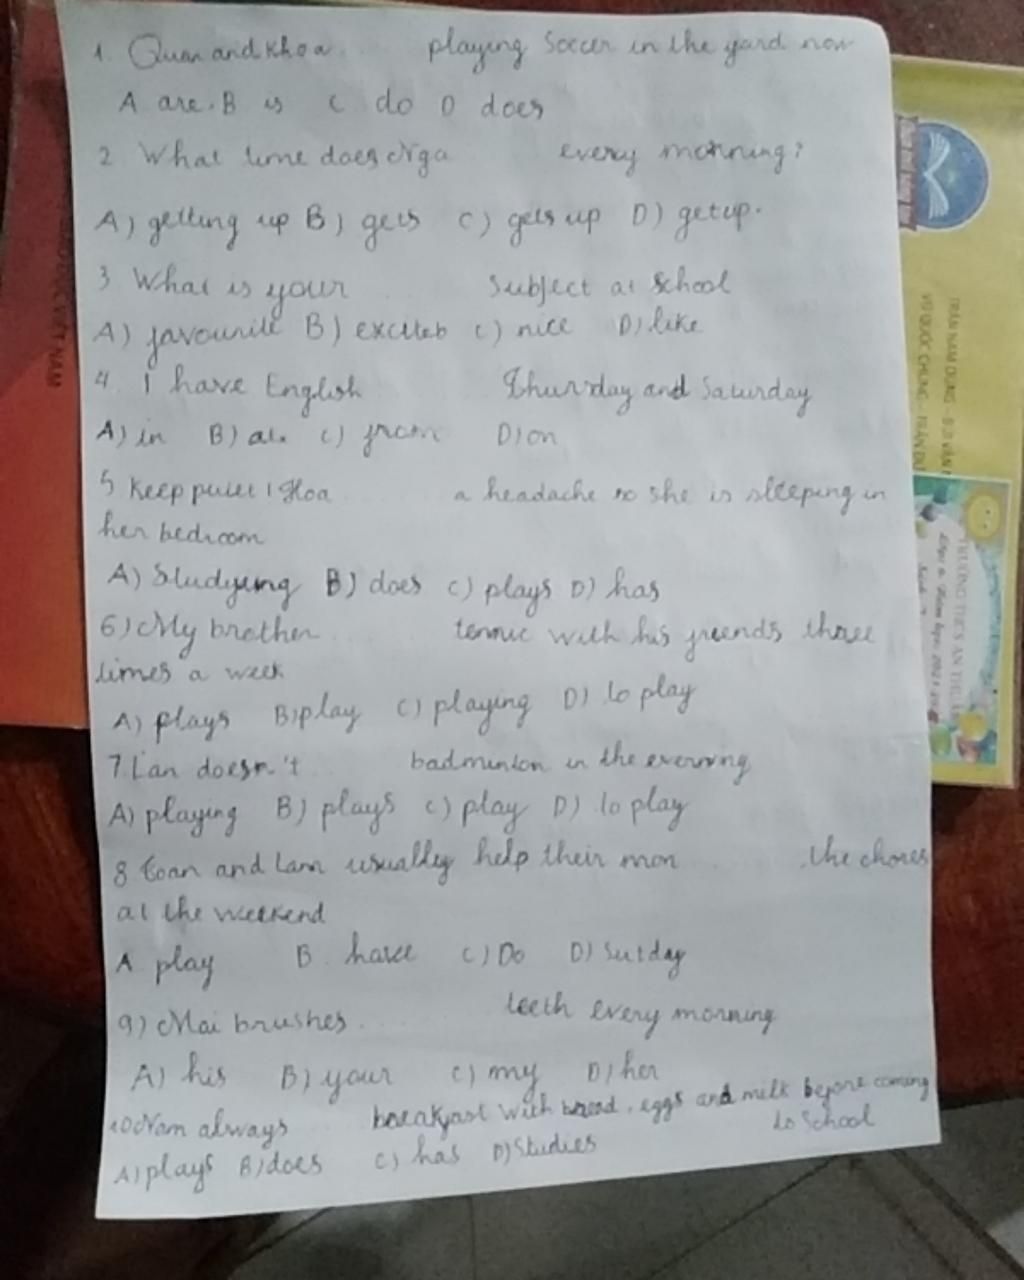 1. Quan and Khoa ... playing Soccer in the yard now
A are. B is C do D does
2 What time does Nga every morning?
A) getting up B) gets C) gets up D) getup.
3 What is your Subject at school
A) favourite B) excited C) nice D) like
4. I have English Thursday and Saturday
A) in B) at. C) from D) on
5 Keep quiet! Hoa a headache so she is sleeping in
her bedroom
A) Studying B) does C) plays D) has
6) My brother tennic with his friends three
times a week
A) plays B) play C) playing D) to play
7. Lan doesn't badminton in the evening
A) playing B) plays C) play D) to play
8. Toan and Lam usually help their mon the chores
at the weekend
A play B. have C) Do D)
9) Mai brushes teeth every morning
A) his B) your C) my D) her
10 Nam always breakfast with bread, eggs and milk before coming
to School
A) plays B) does C) has D) Studies
VIỆT NAM
TRẦN NAM DŨNG -
VŨ QUỐC CHUNG - TRẦN ĐỨ
TRƯỜNG TH